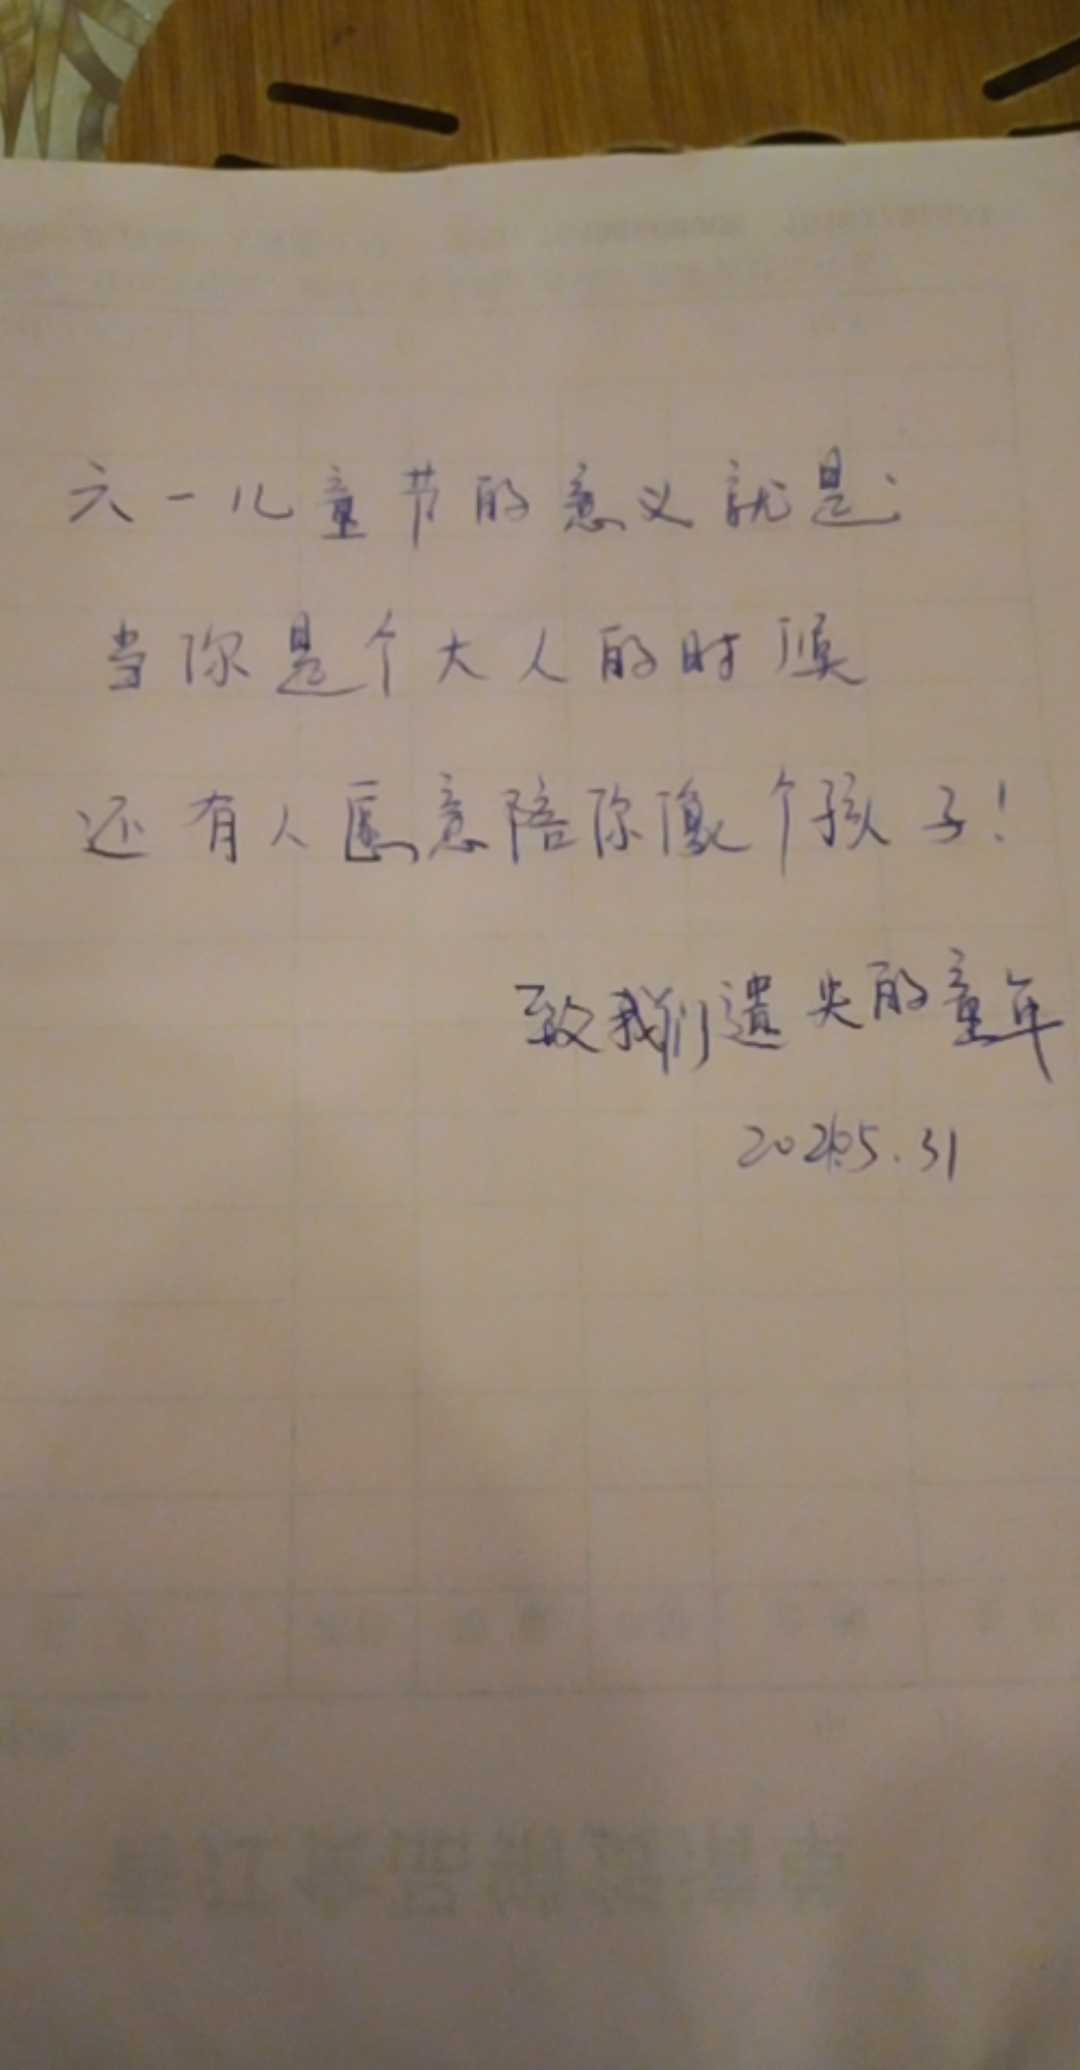 六一儿童节的意义就是:
当你是个大人的时候
还有人愿意陪你像个孩子!
致我们遗失的童年
5.31